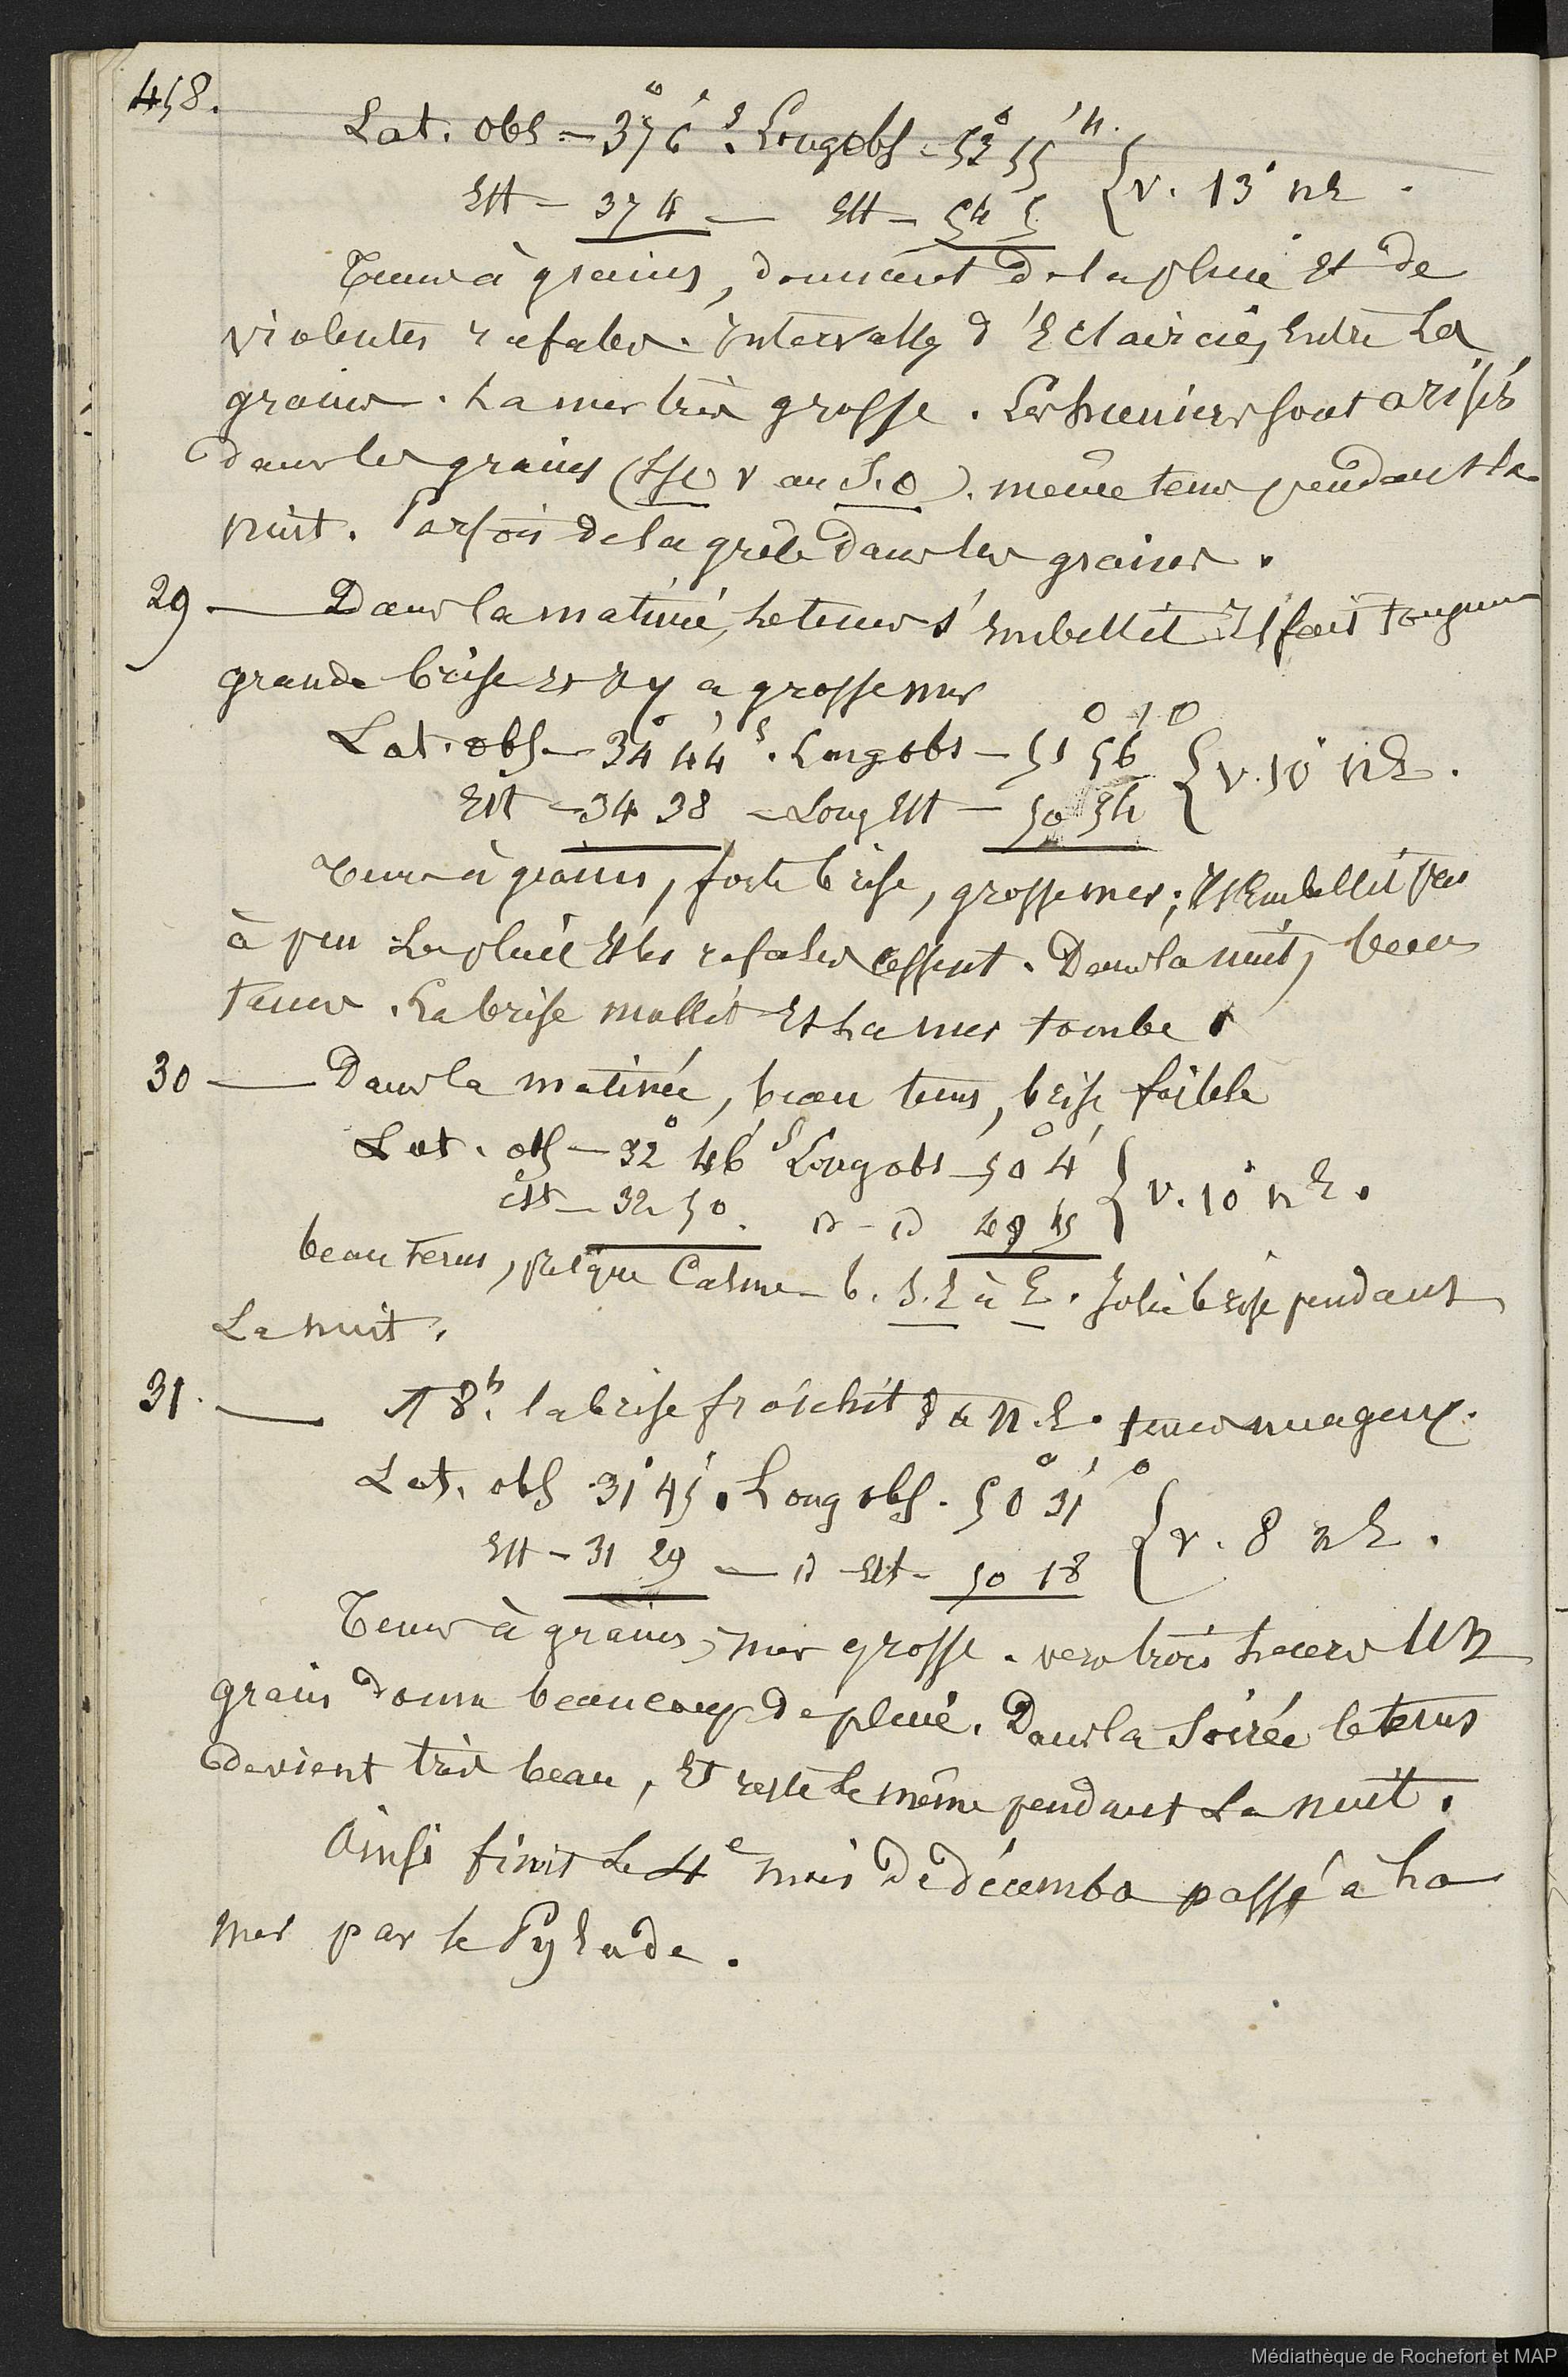 458.
Lat. obs = 37° 6' S. Long obs - 52° 55' {v. 13° NE.
Est - 37 4 — Est - 54 5
Tems à grains, donnant de la pluie et de
violentes rafales. Intervalles d'Eclaircies Entre Les
grains. La mer très grosse. Les huniers sont arisés
dans les grains (SSO v au S.O). même tems pendant la
nuit. Parfois de la grêle dans les grains.
29 — Dans la matinée, Le tems s'Embellit Il fait toujours
grande brise Et Il y a grosse mer
Lat. obs - 34° 44' S. Long obs - 51° 56' O {v. 10° NE.
Est - 34 38 - Long Est - 50 54
Tems à grains, forte brise, grosse mer; Il Embellit peu
à peu La pluie Et les rafales cessent. Dans la nuit, beau
tems. La brise mollit Et La mer tombe.
30 — Dans la matinée, beau tems, brise faible
Lat. obs - 32° 46' S Long obs - 50° 4' {v. 10° NE.
Est - 32 50. id - id 49 45
beau tems, presque Calme - b. S.E à E. Jolie brise pendant
La nuit.
31. — A 8h. la brise fraîchit du N.E. tems nuageux.
Lat. obs 31° 45'. Long obs. 50° 31' O {v. 8 NE.
Est - 31 29 — id Est - 50 18
Tems à grains, mer grosse. vers trois heures UN
grain donne beaucoup de pluie. Dans la Soirée le tems
devient très beau, Et reste Le même pendant La nuit.
Ainsi finit Le 4e mois de décembre passé à La
mer par le Pylade.
Médiathèque de Rochefort et MAP